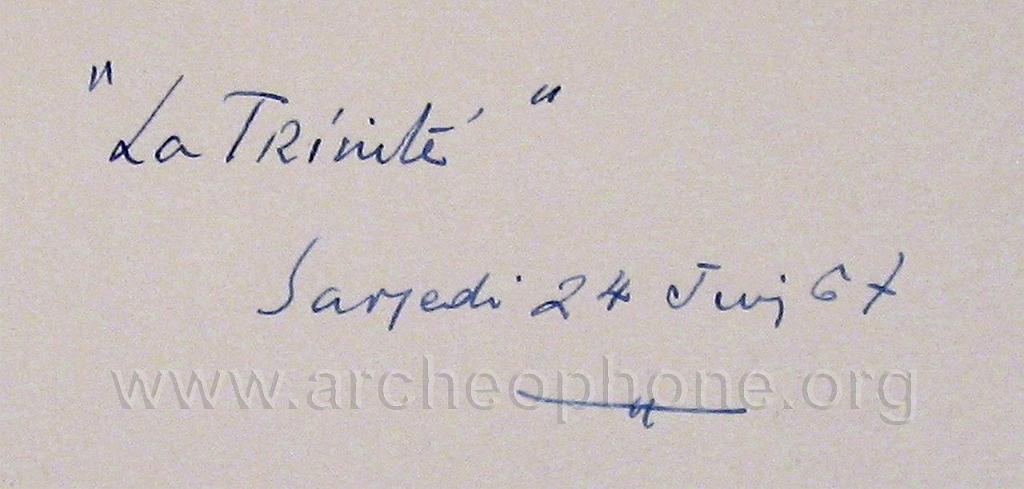 "La Trinité"
Samedi 24 Juin 67
www.archeophone.org